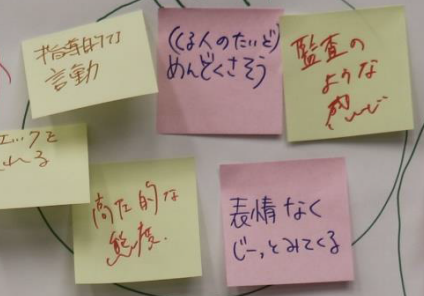 指導的な
言動
(くる人のたいど)
めんどくさそう
監査の
ような
感じ
ェックを
れる
高圧的な
態度.
表情なく
じーっとみてくる